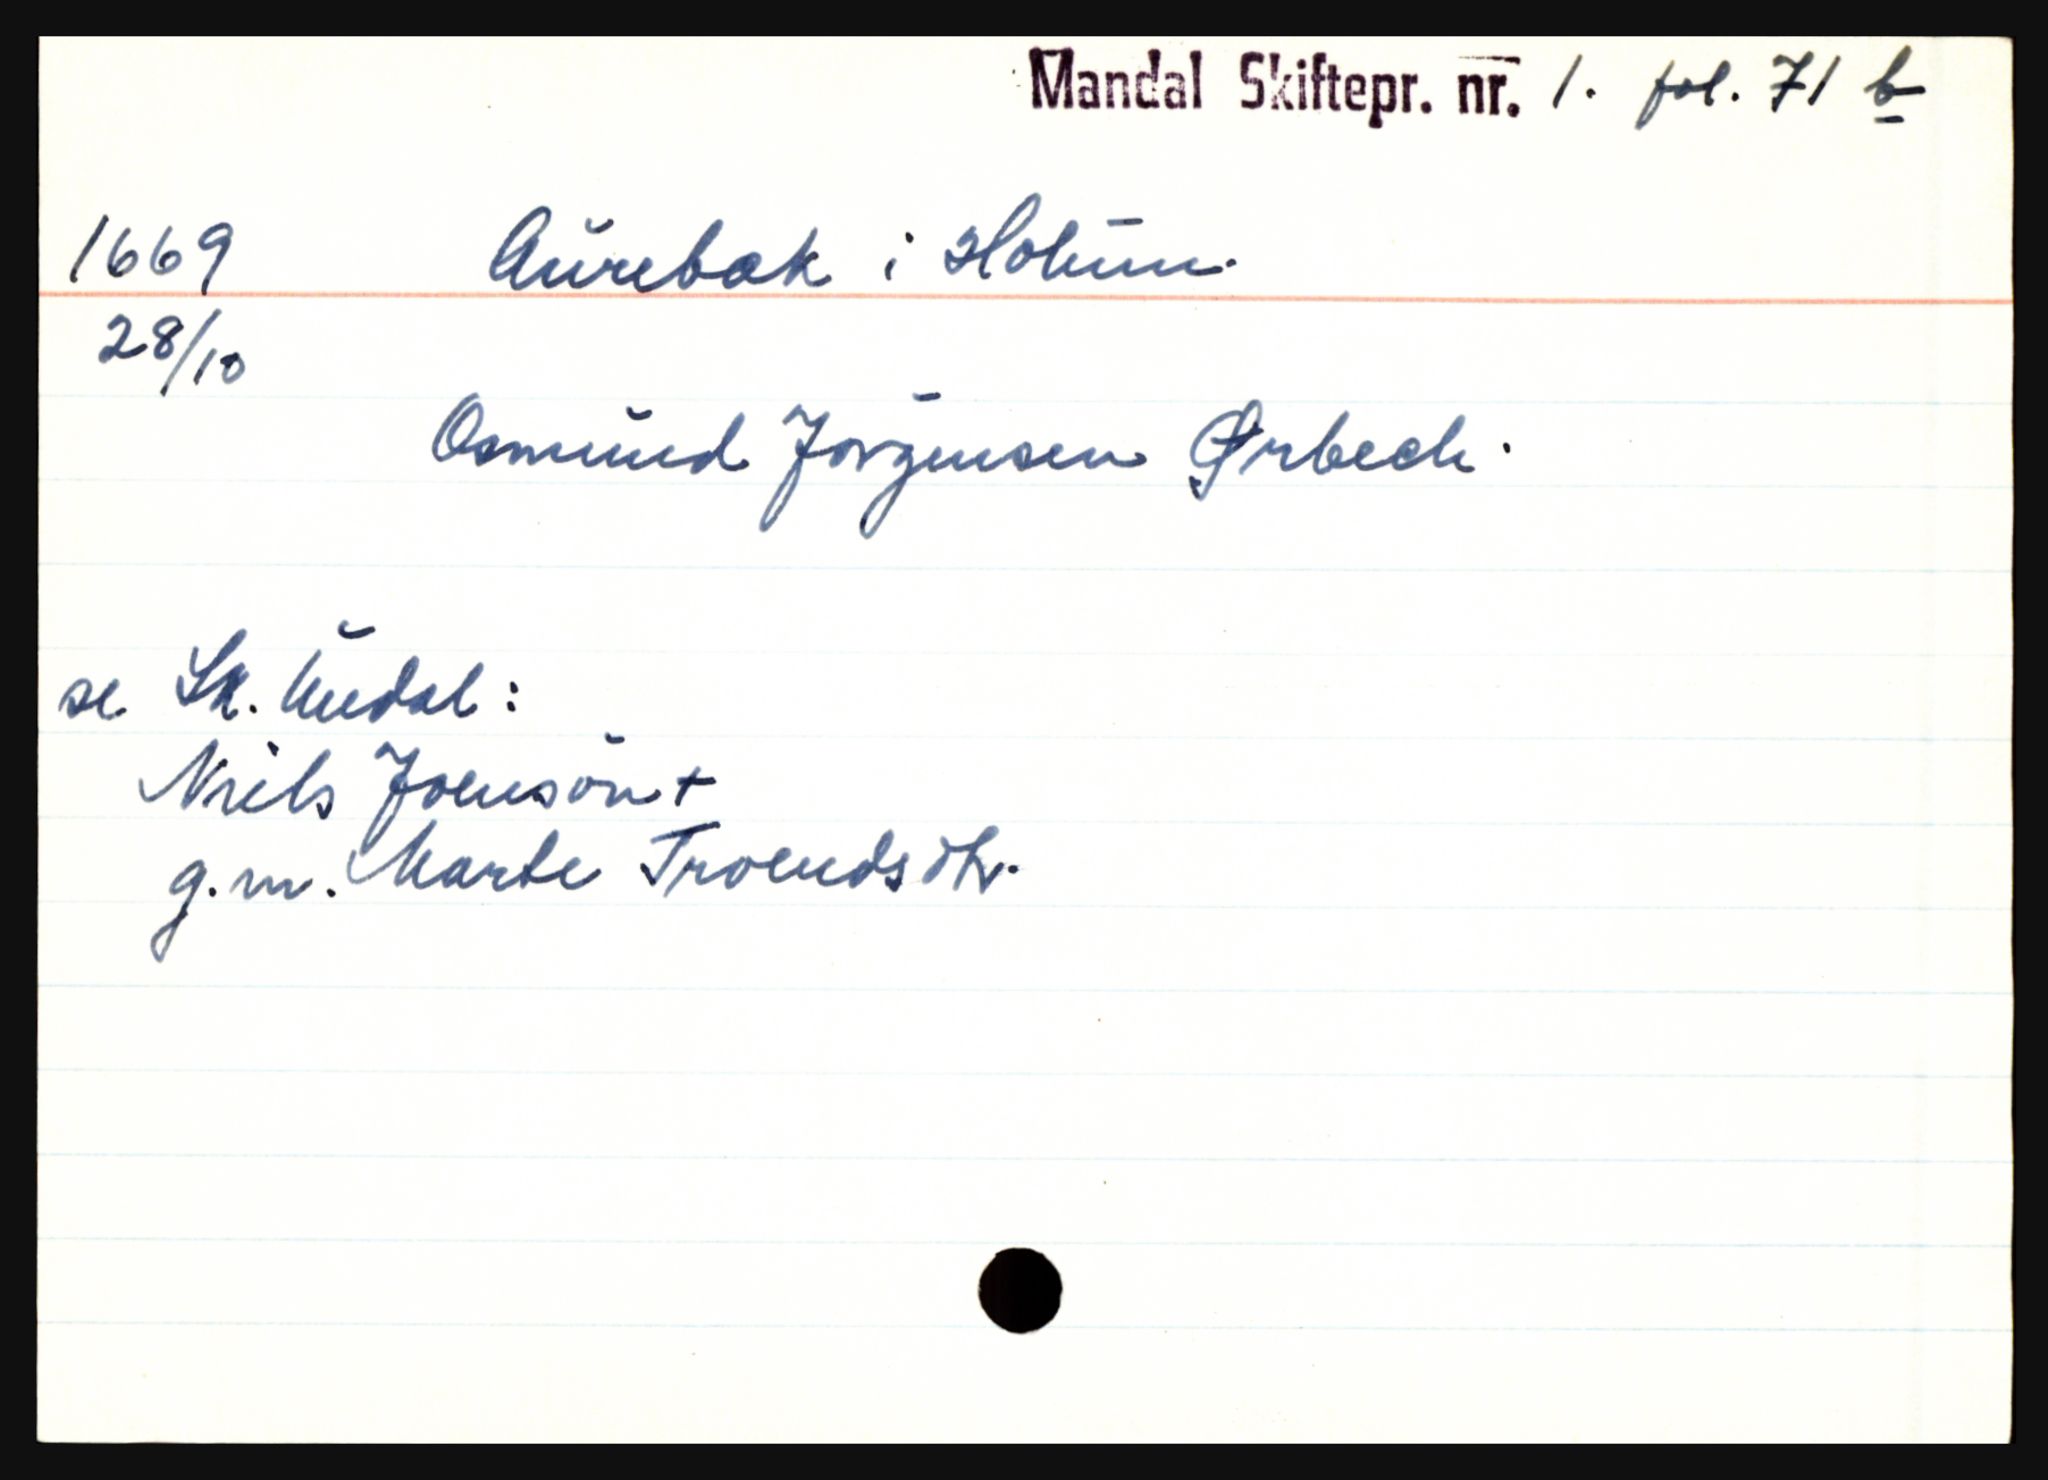 Mandal Skiftepr. nr. 1. fol. 71 b
1669 Aurebæk i Holum.
28/10
Osmund Jørgensen Ørbech.
se Sk. Uudal:
Niels Joensøn +
g.m. Marte Troendsdtr.